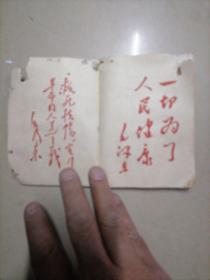 救死扶傷，实行
革命的人道主义
毛泽东
一切为了
人民健康
毛泽东